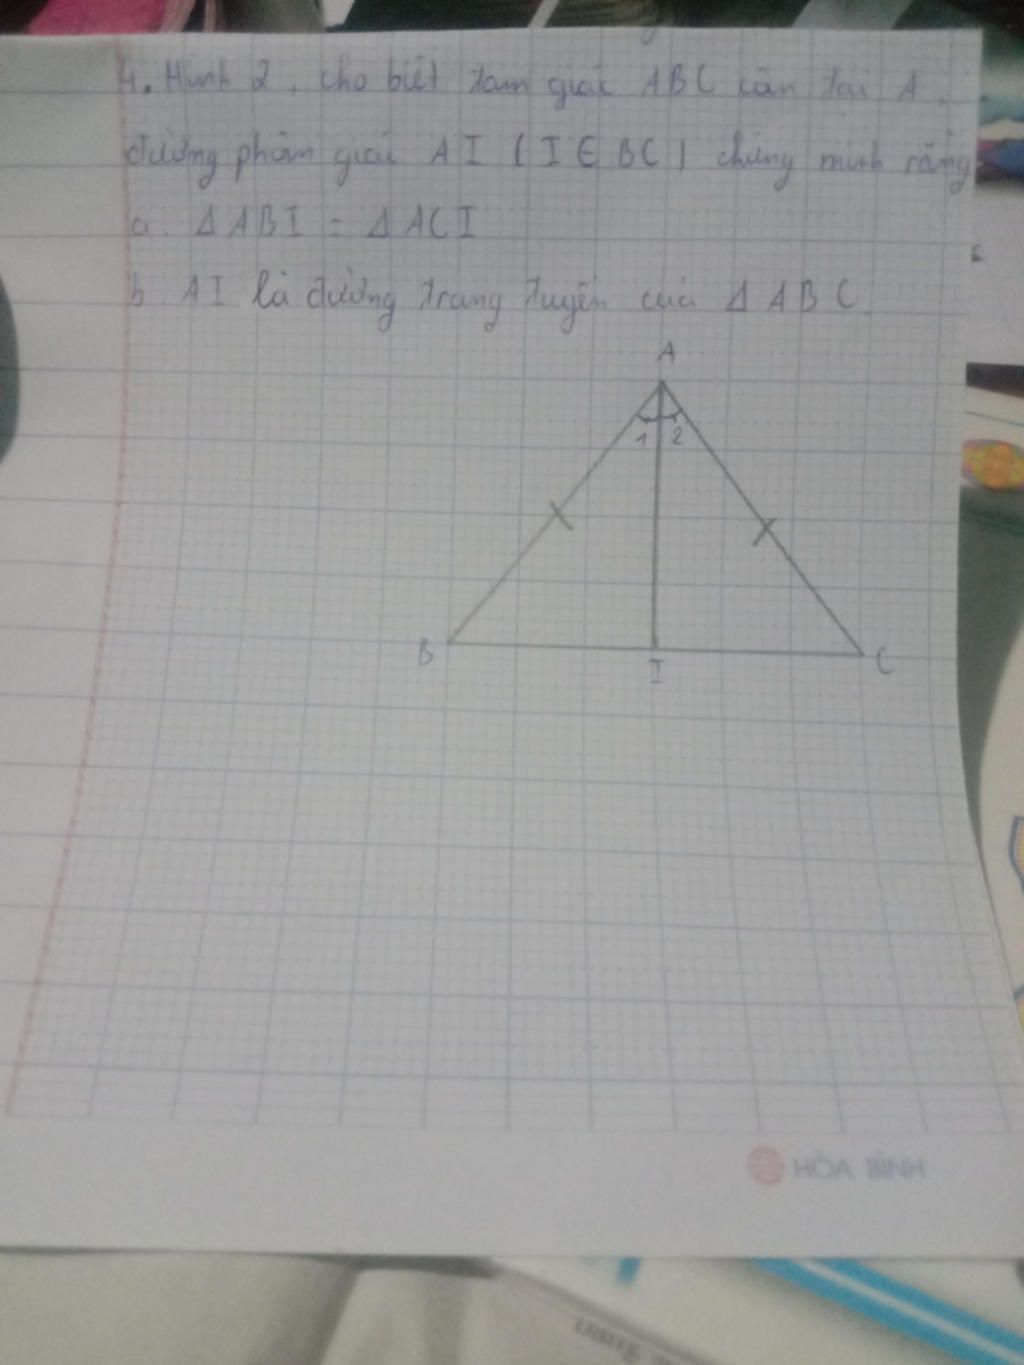 4. Hình 2, cho biết tam giác ABC cân tại A,
đường phân giác AI (I ∈ BC) chứng minh rằng
a. ΔABI = ΔACI
b. AI là đường trung tuyến của ΔABC.
A
1 2
B
I
C
HÒA BÌNH